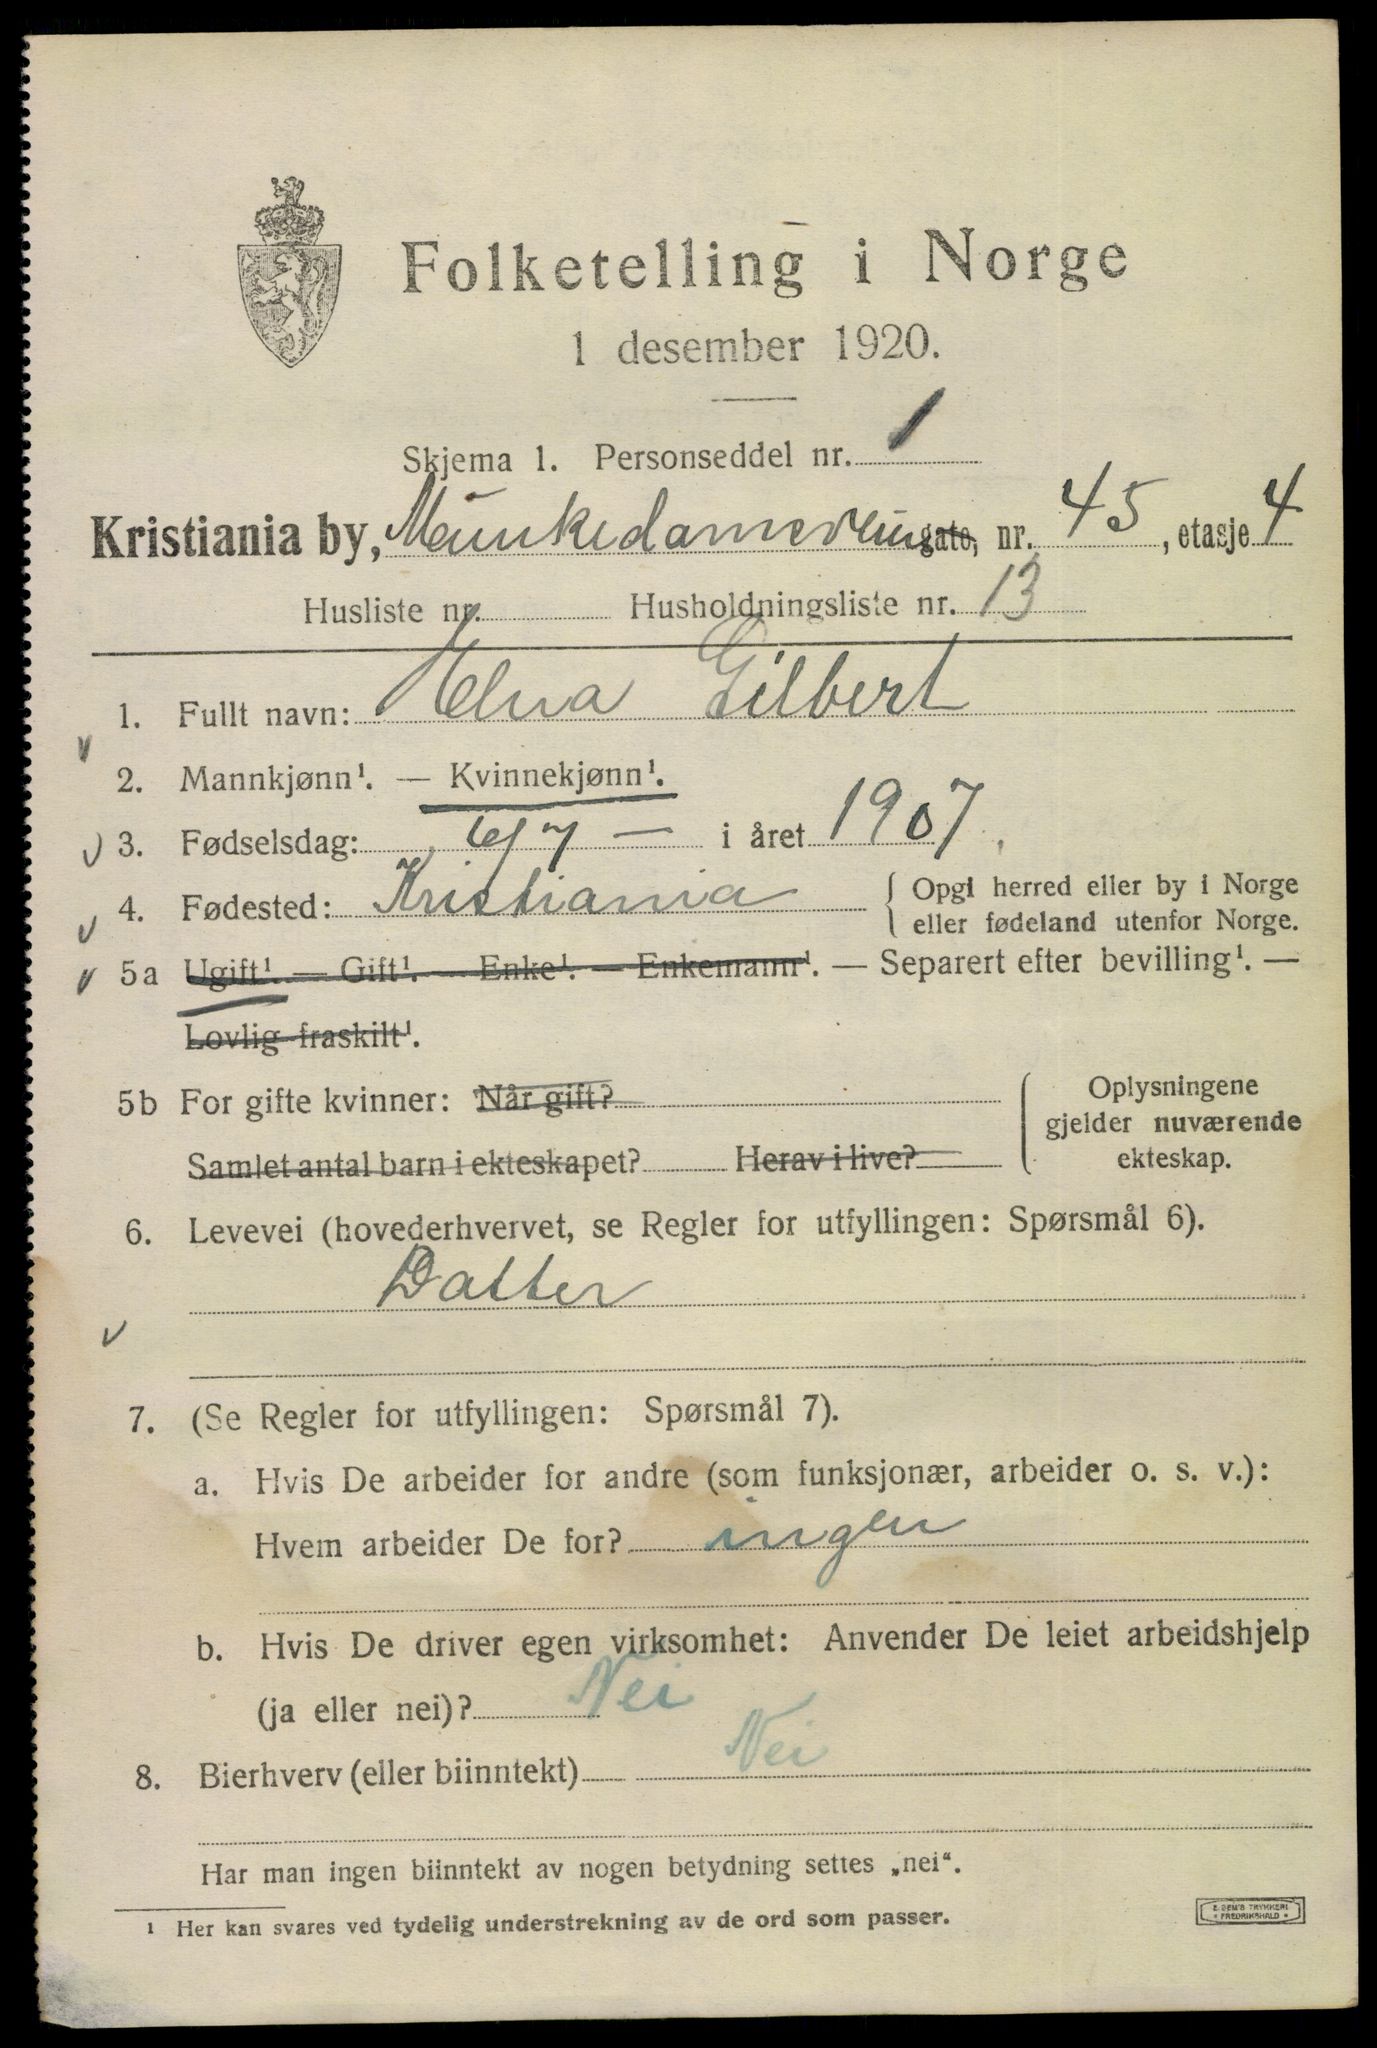 Folketelling i Norge
1 desember 1920.
Skjema 1. Personseddel nr. 1
Kristiania by, Munkedamsveien gate, nr. 45, etasje 4
Husliste nr. Husholdningsliste nr. 13
1. Fullt navn: Elna Gilbert
2. Mannkjønn¹. — Kvinnekjønn¹.
3. Fødselsdag: 6/7 — i året 1907.
4. Fødested: Kristiania { Opgi herred eller by i Norge
eller fødeland utenfor Norge.
5a Ugift¹. — Gift¹. — Enke¹. — Enkemann¹. — Separert efter bevilling¹. —
Lovlig fraskilt¹.
5b For gifte kvinner: Når gift? { Oplysningene
gjelder nuværende
Samlet antal barn i ekteskapet? Herav i live? ekteskap.
6. Levevei (hovederhvervet, se Regler for utfyllingen: Spørsmål 6).
Datter
7. (Se Regler for utfyllingen: Spørsmål 7).
a. Hvis De arbeider for andre (som funksjonær, arbeider o. s. v.):
Hvem arbeider De for? ingen
b. Hvis De driver egen virksomhet: Anvender De leiet arbeidshjelp
(ja eller nei)? Nei
8. Bierhverv (eller biinntekt) Nei
Har man ingen biinntekt av nogen betydning settes „nei“.
¹ Her kan svares ved tydelig understrekning av de ord som passer.
FREDRIKSHALD